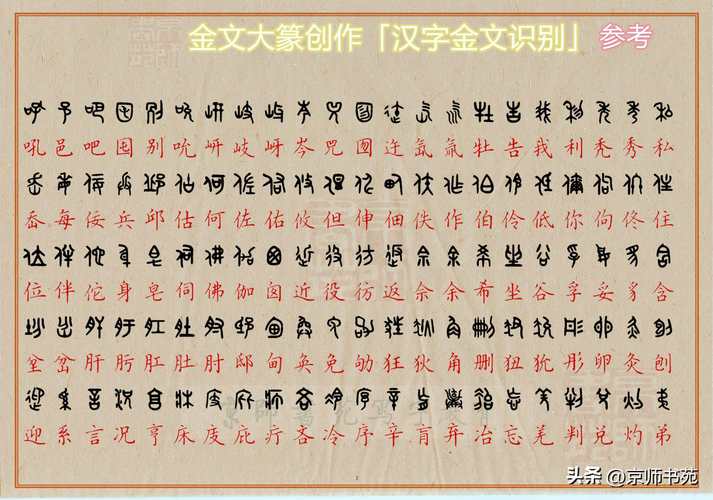 金文大篆创作「汉字金文识别」 参考
吼邑吧囤别吮岍岐岈岑兕囫迕氙氚牡告我利秃秀私
岙每佞兵邱估何佐佑攸但伸佃佚作伯伶低你佝佟住
位伴佗身皂伺佛伽囱近役彷返佘余希坐谷孚妥豸含
坌岔肝肟肛肚肘邸甸奂免劬狂狄角删狃犹彤卵灸刨
迎系言况亨床庋庇疗吝冷序辛肓弃冶忘羌判兑灼弟
头条 @京师书苑